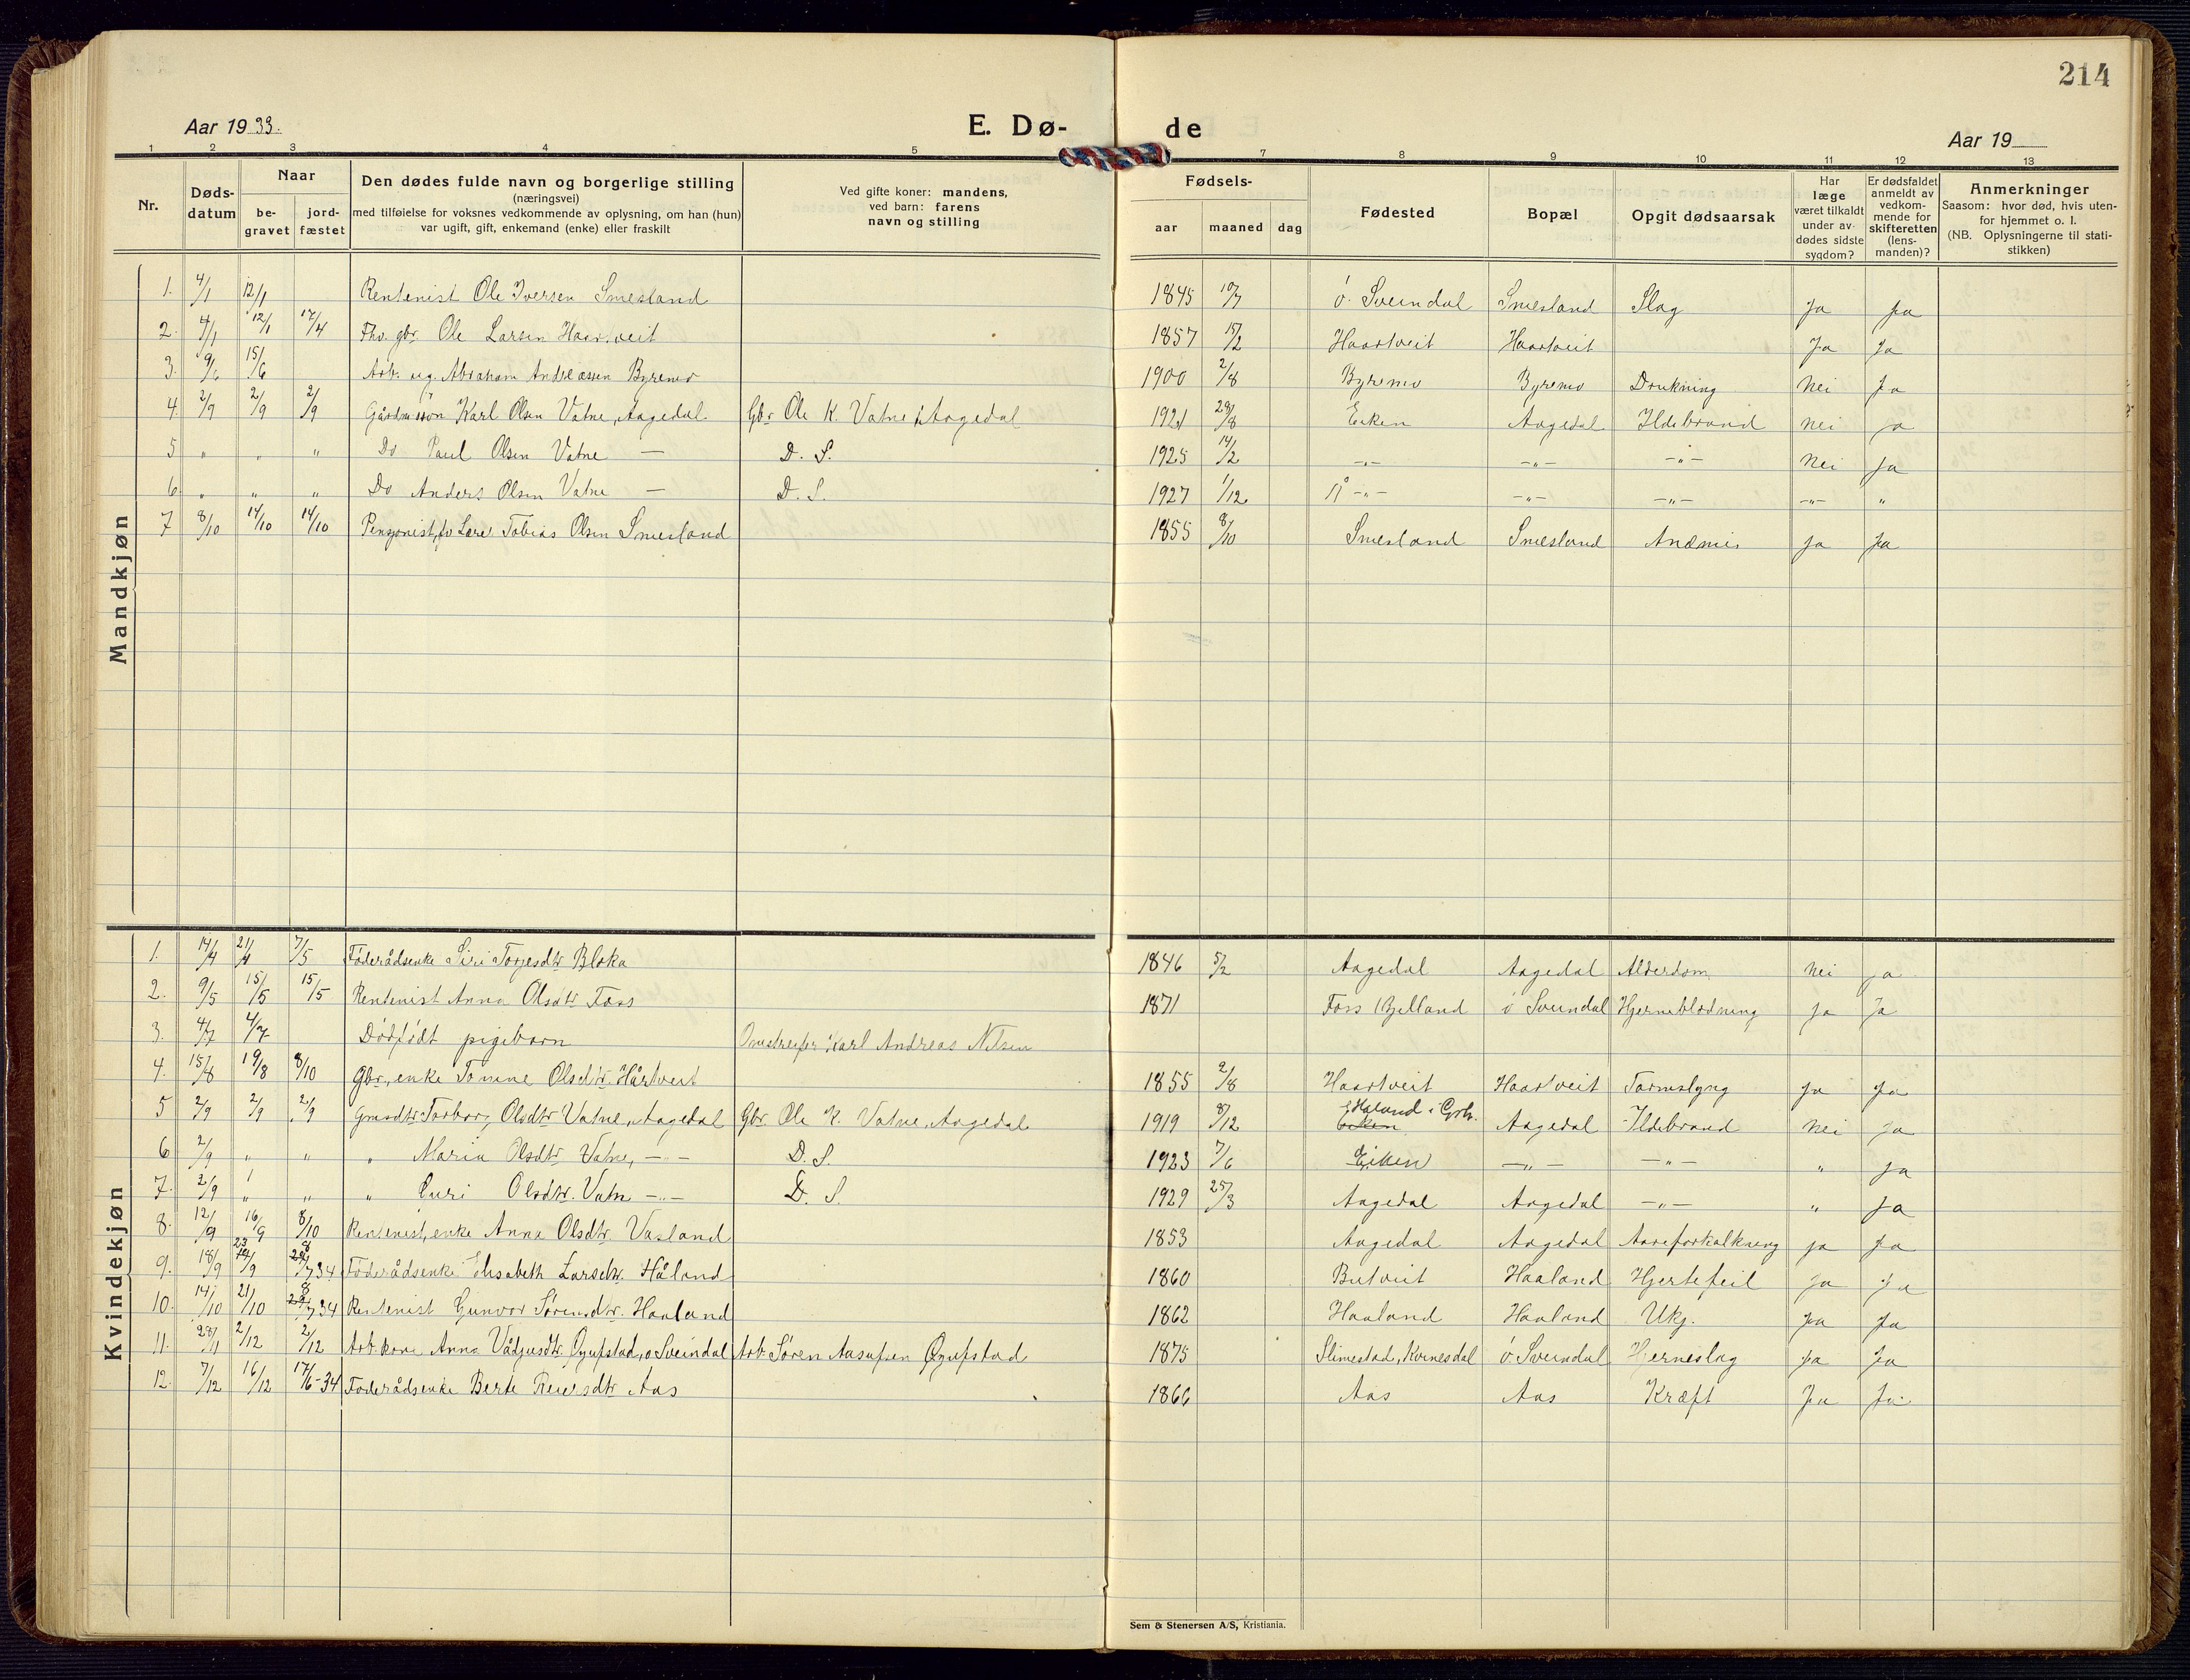 214
Aar 1933.
E. Dø-
de
Aar 19
1 2 3 4 5 7 8 9 10 11 12 13
Nr.
Døds-
datum
Naar
be-
gravet
jord-
fæstet
Den dødes fulde navn og borgerlige stilling
(næringsvei)
med tilføielse for voksnes vedkommende av oplysning, om han (hun)
var ugift, gift, enkemand (enke) eller fraskilt
Ved gifte koner: mandens,
ved barn: farens
navn og stilling
Fødsels-
aar maaned dag
Fødested
Bopæl
Opgit dødsaarsak
Har
læge
været tilkaldt
under av-
dødes sidste
sygdom?
Er dødsfaldet
anmeldt av
vedkom-
mende for
skifteretten
(lens-
manden)?
Anmerkninger
Saasom: hvor død, hvis uten-
for hjemmet o. l.
(NB. Oplysningerne til stati-
stikken)
Mandkjøn
1. 4/1 12/1 Rentenist Ole Iversen Smesland 1845 10/7 ö. Sveindal Smesland Slag Ja Ja
2. 4/1 12/1 17/4 Fhv. gbr. Ole Larsen Haartveit 1857 15/2 Haartveit Haartveit Ja Ja
3. 9/6 15/6 Arb. ug. Abraham Andreassen Byremo 1900 2/8 Byremo Byremo Drukning Nei Ja
4. 2/9 2/9 2/9 Gårdmssön Karl Olsen Vatne, Aagedal Gbr. Ole K. Vatne, Aagedal 1921 29/8 Eiken Aagedal Ildebrand Nei Ja
5 " " " Do Paul Olsen Vatne — D. S. 1925 14/2 -"- -"- -"- Nei Ja
6 " " " Do Anders Olsen Vatne — D. S. 1927 1/12 -"- -"- -"- -"- "
7 8/10 14/10 14/10 Pensjonist, fv Lærer Tobias Olsen Smesland 1855 8/10 Smesland Smesland Anæmi Ja Ja
Kvindekjøn
1. 14/4 21/4 7/5 Föderådsenke Siri Torjesdtr Bloka 1846 5/2 Aagedal Aagedal Alderdom Nei Ja
2. 9/5 15/5 15/5 Rentenist Anna Olsdtr Foss 1871 Foss Bjelland ö Sveindal Hjerneblødning Ja Ja
3. 4/7 4/7 Dödfödt pigebarn Omstreifer Karl Andreas Nilsen
4. 15/8 19/8 8/10 Gbr., enke Tomine Olsdtr. Hårtveit 1855 2/8 Haartveit Haartveit Tarmslyng Ja Ja
5 2/9 2/9 2/9 Gmsdtr Torborg Olsdtr Vatne, Aagedal Gbr. Ole K. Vatne, Aagedal 1919 8/12 Eiken Haland i Grb. Aagedal Ildebrand Nei Ja
6 2/9 " " " Maria Olsdtr Vatne, -"- D. S. 1923 7/6 Eiken -"- -"- " Ja
7. 2/9 " " " Guri Olsdtr. Vatn -"- D. S. 1929 25/3 Aagedal Aagedal -"- " Ja
8. 12/9 16/9 8/10 Rentenist, enke Anna Olsdtr. Vasland 1853 Aagedal Aagedal Aareforkalkning Ja Ja
9. 18/9 23/9 8/7 34 Föderådsenke Elisabeth Larsdtr. Håland 1860 Butveit Haaland Hjertefeil Ja Ja
10. 14/10 21/10 8/7 34 Rentenist Gunvor Sörensdtr. Haaland 1862 Haaland Haaland Ukj. Ja Ja
11. 28/11 2/12 2/12 Arb. kone Anna Vådjusdtr. Øgufstad, ö Sveindal Arb. Sören Aasufsen Øgufstad 1875 Slimestad, Kvinesdal ö. Sveindal Hjerneslag Ja Ja
12. 7/12 16/12 17/6-34 Foderådsenke Berte Reiersdtr Aas 1866 Aas Aas Kræft Ja Ja
Sem & Stenersen A/S, Kristiania.